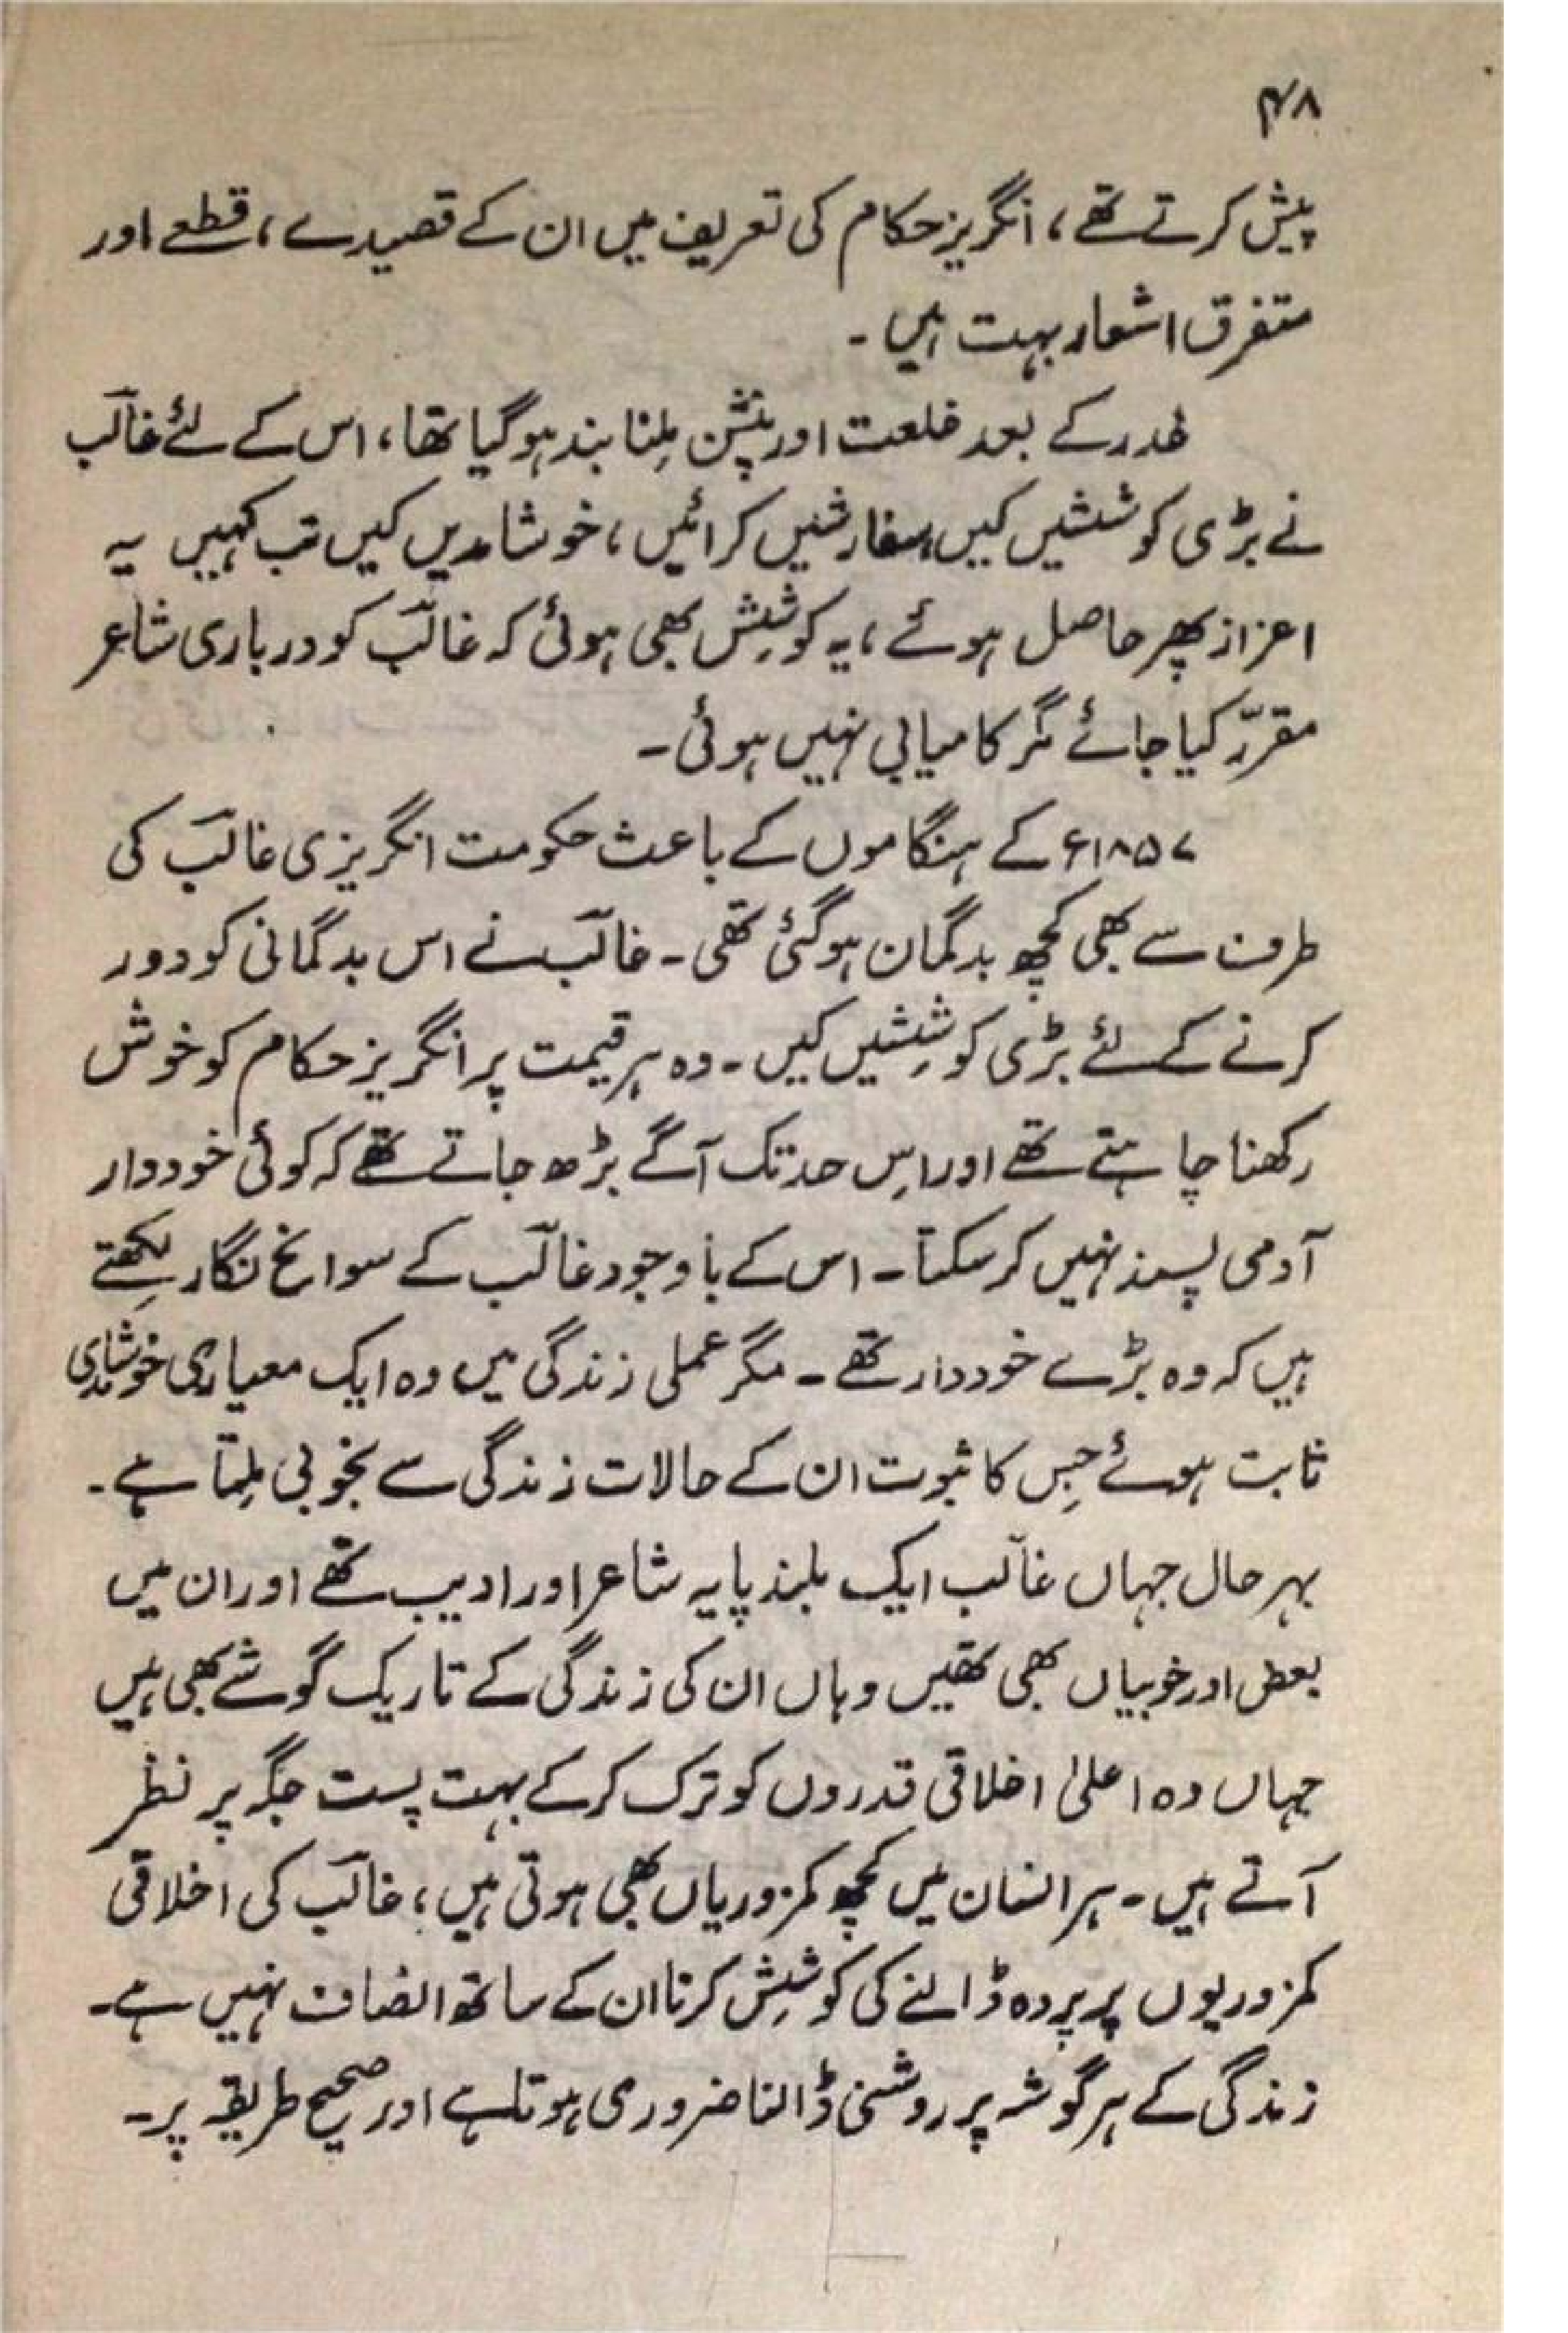 ۴۸
پیش کرتے تھے، انگریز حکام کی تعریف میں ان کے قصیدے، قطعے اور
متفرق اشعار بہت ہیں۔
غدر کے بعد خلعت اور پنشن مِلنا بند ہو گیا تھا، اس کے لئے غالؔب
نے بڑی کوششیں کیں، سفارشیں کرائیں، خوشامدیں کیں تب کہیں یہ
اعزاز پھر حاصل ہوئے، یہ کوشِش بھی ہوئی کہ غالؔب کو درباری شاعر
مقررّ کیا جائے مگر کامیابی نہیں ہوئی۔
۱۸۵۷ء کے ہنگاموں کے باعث حکومت انگریزی غالؔب کی
طرف سے بھی کچھ بدگمان ہو گئی تھی۔ غالؔب نے اس بدگمانی کو دور
کرنے کے لئے بڑی کوشِشیں کیں۔ وہ ہر قیمت پر انگریز حکام کو خوش
رکھنا چاہتے تھے اور اسِ حد تک آگے بڑھ جاتے تھے کہ کوئی خوددار
آدمی پسند نہیں کر سکتا۔ اس کے باوجود غالؔب کے سوانح نگار لِکھتے
ہیں کہ وہ بڑے خوددار تھے۔ مگر عملی زندگی میں وہ ایک معیاری خوشامدی
ثابت ہوئے جِس کا ثبوت ان کے حالات زندگی سے بخوبی مِلتا ہے۔
بہر حال جہاں غالؔب ایک بلند پایہ شاعر اور ادیب تھے اور ان میں
بعض اور خوبیاں بھی تھیں وہاں ان کی زندگی کے تاریک گوشے بھی ہیں
جہاں وہ اعلیٰ اخلاقی قدروں کو ترک کر کے بہت پست جگہ پر نظر
آتے ہیں۔ ہر انسان میں کچھ کمزوریاں بھی ہوتی ہیں، غالؔب کی اخلاقی
کمزوریوں پر پردہ ڈالنے کی کوشِش کرنا ان کے ساتھ انصاف نہیں ہے۔
زندگی کے ہر گوشہ پر روشنی ڈالنا ضروری ہوتا ہے اور صحیح طریقہ پر۔